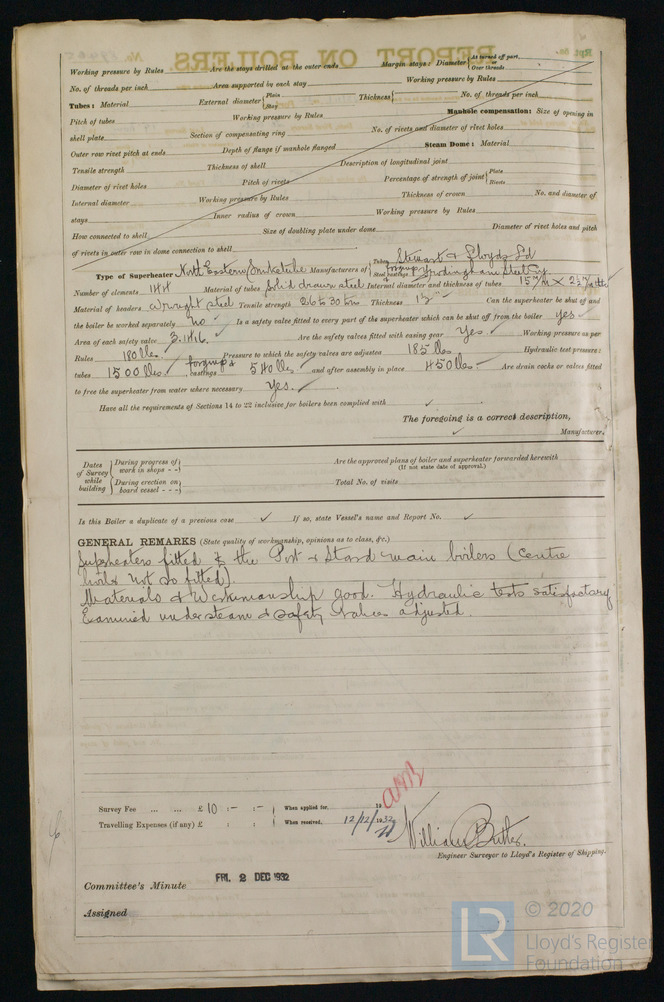 REPORT ON BOILERS.
Working pressure by Rules Are the stays drilled at the outer ends Margin stays: Diameter { At turned off part, or Over threads
No. of threads per inch Area supported by each stay Working pressure by Rules
Tubes: Material External diameter { Plain Stay Thickness { No. of threads per inch
Pitch of tubes Working pressure by Rules Manhole compensation: Size of opening in
shell plate Section of compensating ring No. of rivets and diameter of rivet holes
Outer row rivet pitch at ends Depth of flange if manhole flanged Steam Dome: Material
Tensile strength Thickness of shell Description of longitudinal joint
Diameter of rivet holes Pitch of rivets Percentage of strength of joint { Plate Rivets
Internal diameter Working pressure by Rules Thickness of crown No. and diameter of
stays Inner radius of crown Working pressure by Rules
How connected to shell Size of doubling plate under dome Diameter of rivet holes and pitch
of rivets in outer row in dome connection to shell
Type of Superheater North Eastern Smoketube Manufacturers of { Tubes Stewart & Lloyds Ld Steel forgings Appodingham Steel Cy
Number of elements 144 Material of tubes Solid drawn steel Internal diameter and thickness of tubes 15 m/m X 2½ m/m
Material of headers Wrought steel Tensile strength 26 to 30 tons Thickness 1½" Can the superheater be shut off and
the boiler be worked separately No Is a safety valve fitted to every part of the superheater which can be shut off from the boiler yes
Area of each safety valve 3.1416 Are the safety valves fitted with easing gear Yes. Working pressure as per
Rules 180 lbs Pressure to which the safety valves are adjusted 185 lbs Hydraulic test pressure:
tubes 1500 lbs forgings & castings 540 lbs and after assembly in place 450 lbs Are drain cocks or valves fitted
to free the superheater from water where necessary Yes.
Have all the requirements of Sections 14 to 22 inclusive for boilers been complied with
The foregoing is a correct description,
Manufacturer.
Dates of Survey while building { During progress of work in shops - - During erection on board vessel - - -
Are the approved plans of boiler and superheater forwarded herewith (If not state date of approval.)
Total No. of visits
Is this Boiler a duplicate of a previous case If so, state Vessel's name and Report No.
GENERAL REMARKS (State quality of workmanship, opinions as to class, &c.)
Superheaters fitted to the Port & Starbd main boilers (Centre
boiler not so fitted).
Materials & Workmanship good. Hydraulic tests satisfactory
Examined under steam & safety valves adjusted.
Survey Fee ... ... £ 10 : - : - When applied for, 19
Travelling Expenses (if any) £ : : When received, 12/12/1932
William Butler.
Engineer Surveyor to Lloyd's Register of Shipping.
Committee's Minute FRI. 2 DEC 1932
Assigned
LR © 2020
Lloyd's Register
Foundation